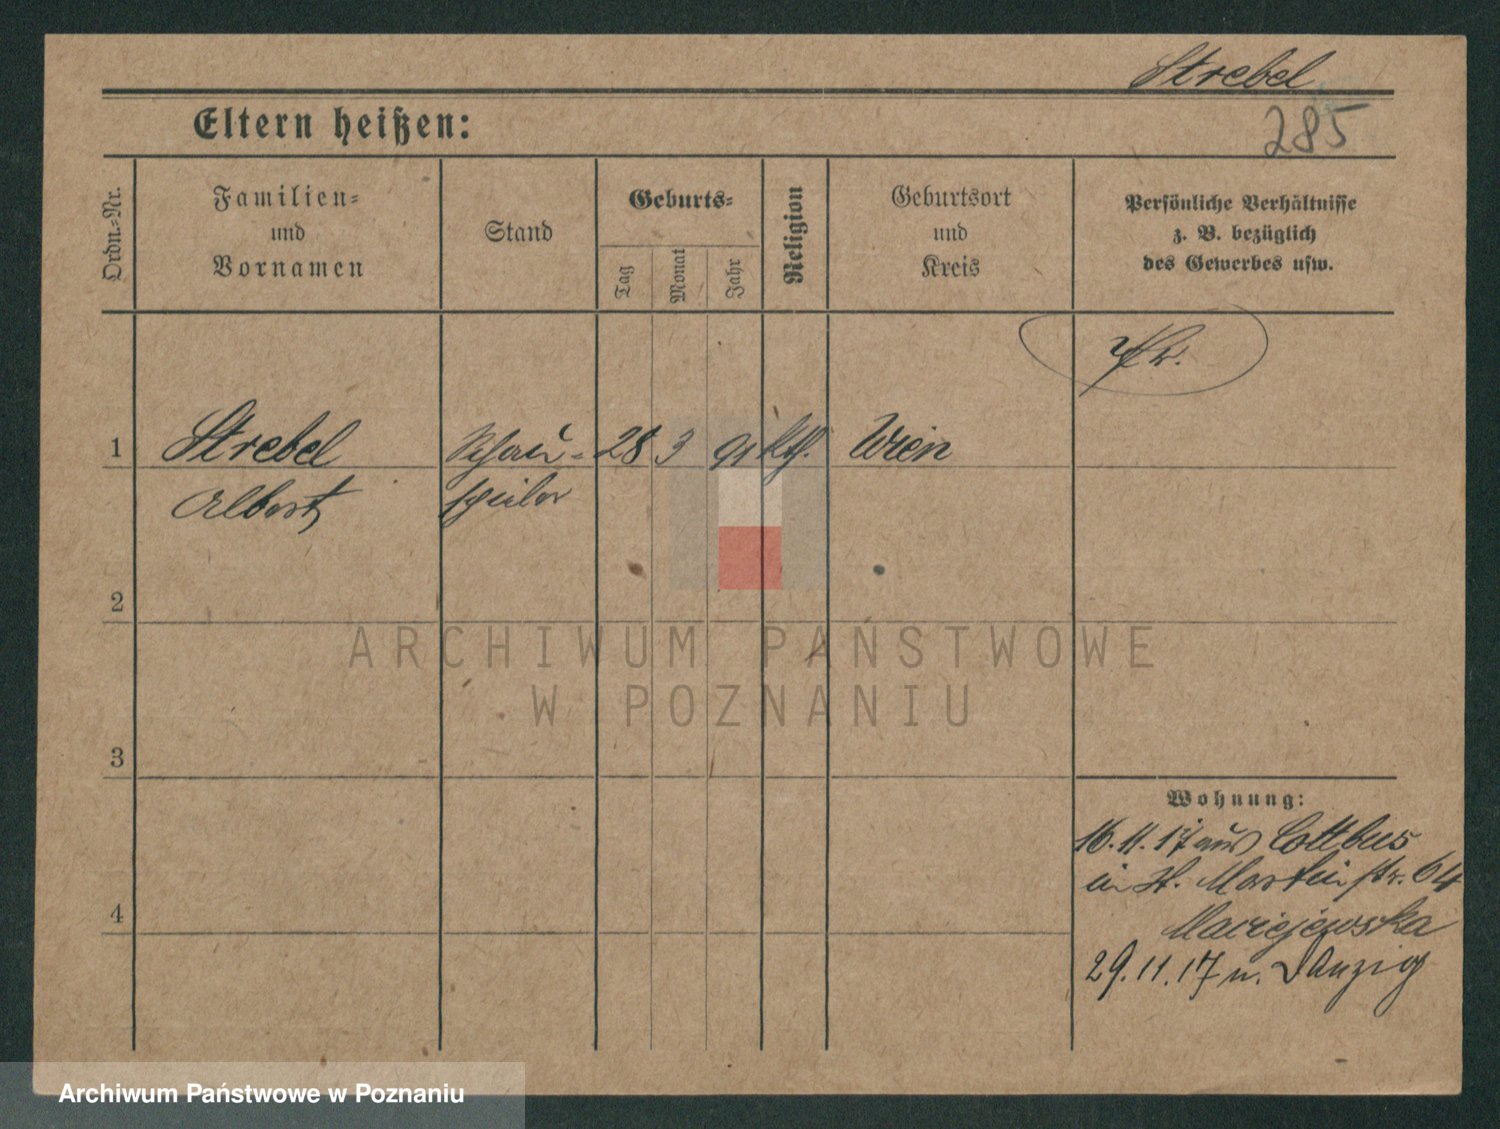 Strebel
285
Eltern heißen:
Ordn.-Nr.
Familien-
und
Vornamen
Stand
Geburts-
Tag
Monat
Jahr
Religion
Geburtsort
und
Kreis
Persönliche Verhältnisse
z. B. bezüglich
des Gewerbes usw.
1
Strebel
Albert
Schau-
spieler
28
3
91
kth.
Wien
2
3
4
Wohnung:
16.11.17 aus Cottbus
in St. Martinstr. 64
Maciejewska
29.11.17 n. Danzig
ARCHIWUM PAŃSTWOWE
W POZNANIU
Archiwum Państwowe w Poznaniu